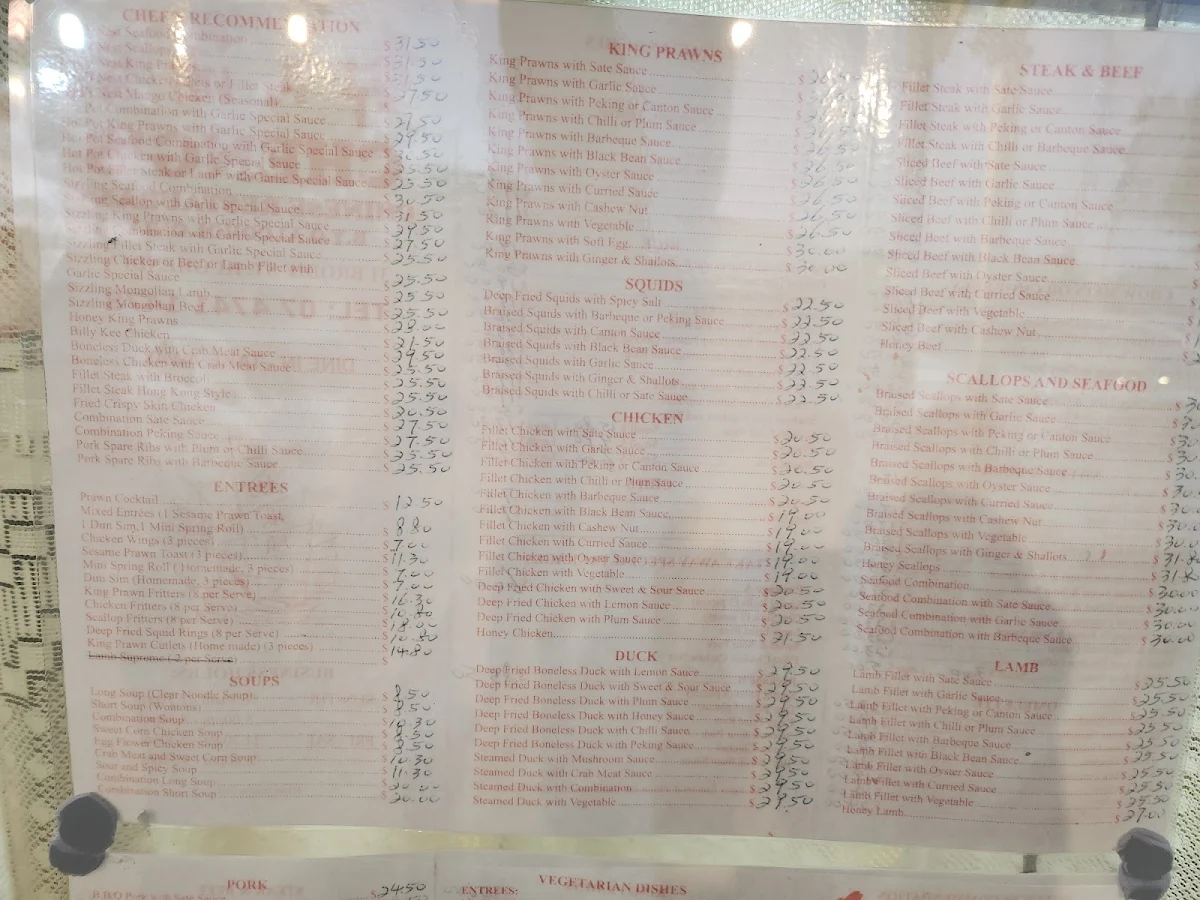 CHEF'S RECOMMENDATION
Nest Seafood Combination $31.50
Nest Scallops $31.50
Nest King Prawns $31.50
Nest Chicken Fillets or Fillet Steak $27.50
Nest Mango Chicken (Seasonal) $
Combination with Garlic Special Sauce $27.50
Hot Pot King Prawns with Garlic Special Sauce $29.50
Hot Pot Seafood Combination with Garlic Special Sauce $30.50
Hot Pot Chicken with Garlic Special Sauce $25.50
Hot Pot Fillet Steak or Lamb with Garlic Special Sauce $25.50
Sizzling Seafood Combination $30.50
Scallop with Garlic Special Sauce $31.50
Sizzling King Prawns with Garlic Special Sauce $29.50
Combination with Garlic Special Sauce $27.50
Sizzling Fillet Steak with Garlic Special Sauce $25.50
Sizzling Chicken or Beef or Lamb Fillet with
Garlic Special Sauce $25.50
Sizzling Mongolian Lamb $25.50
Sizzling Mongolian Beef $25.50
Honey King Prawns $28.00
Billy Kee Chicken $21.50
Boneless Duck with Crab Meat Sauce $29.50
Boneless Chicken with Crab Meat Sauce $25.50
Fillet Steak with Broccoli $25.50
Fillet Steak Hong Kong Style $25.50
Fried Crispy Skin Chicken $20.50
Combination Sate Sauce $27.50
Combination Peking Sauce $27.50
Pork Spare Ribs with Plum or Chilli Sauce $25.50
Pork Spare Ribs with Barbeque Sauce $25.50
ENTREES
Prawn Cocktail $12.50
Mixed Entrées (1 Sesame Prawn Toast,
1 Dim Sim, 1 Mini Spring Roll) $8.80
Chicken Wings (3 pieces) $7.00
Sesame Prawn Toast (3 pieces) $11.30
Mini Spring Roll (Homemade, 3 pieces) $7.00
Dim Sim (Homemade, 3 pieces) $7.00
King Prawn Fritters (8 per Serve) $16.30
Chicken Fritters (8 per Serve) $10.80
Scallop Fritters (8 per Serve) $18.00
Deep Fried Squid Rings (8 per Serve) $10.80
King Prawn Cutlets (Home made) (3 pieces) $14.80
Lamb Supreme (2 per Serve) $
SOUPS
Long Soup (Clear Noodle Soup) $8.50
Short Soup (Wontons) $8.50
Combination Soup $10.30
Sweet Corn Chicken Soup $8.50
Egg Flower Chicken Soup $8.50
Crab Meat and Sweet Corn Soup $10.30
Sour and Spicy Soup $11.30
Combination Long Soup $20.00
Combination Short Soup $20.00
KING PRAWNS
King Prawns with Sate Sauce $26.50
King Prawns with Garlic Sauce $
King Prawns with Peking or Canton Sauce $
King Prawns with Chilli or Plum Sauce $
King Prawns with Barbeque Sauce $26.50
King Prawns with Black Bean Sauce $26.50
King Prawns with Oyster Sauce $26.50
King Prawns with Curried Sauce $26.50
King Prawns with Cashew Nut $26.50
King Prawns with Vegetable $26.50
King Prawns with Soft Egg $30.00
King Prawns with Ginger & Shallots $30.00
SQUIDS
Deep Fried Squids with Spicy Salt $22.50
Braised Squids with Barbeque or Peking Sauce $22.50
Braised Squids with Canton Sauce $22.50
Braised Squids with Black Bean Sauce $22.50
Braised Squids with Garlic Sauce $22.50
Braised Squids with Ginger & Shallots $22.50
Braised Squids with Chilli or Sate Sauce $22.50
CHICKEN
Fillet Chicken with Sate Sauce $20.50
Fillet Chicken with Garlic Sauce $20.50
Fillet Chicken with Peking or Canton Sauce $20.50
Fillet Chicken with Chilli or Plum Sauce $20.50
Fillet Chicken with Barbeque Sauce $20.50
Fillet Chicken with Black Bean Sauce $19.00
Fillet Chicken with Cashew Nut $19.00
Fillet Chicken with Curried Sauce $19.00
Fillet Chicken with Oyster Sauce $19.00
Fillet Chicken with Vegetable $19.00
Deep Fried Chicken with Sweet & Sour Sauce $20.50
Deep Fried Chicken with Lemon Sauce $20.50
Deep Fried Chicken with Plum Sauce $20.50
Honey Chicken $21.50
DUCK
Deep Fried Boneless Duck with Lemon Sauce $29.50
Deep Fried Boneless Duck with Sweet & Sour Sauce $29.50
Deep Fried Boneless Duck with Plum Sauce $29.50
Deep Fried Boneless Duck with Honey Sauce $29.50
Deep Fried Boneless Duck with Chilli Sauce $29.50
Deep Fried Boneless Duck with Peking Sauce $29.50
Steamed Duck with Mushroom Sauce $29.50
Steamed Duck with Crab Meat Sauce $29.50
Steamed Duck with Combination $29.50
Steamed Duck with Vegetable $29.50
STEAK & BEEF
Fillet Steak with Sate Sauce
Fillet Steak with Garlic Sauce
Fillet Steak with Peking or Canton Sauce
Fillet Steak with Chilli or Barbeque Sauce
Sliced Beef with Sate Sauce
Sliced Beef with Garlic Sauce
Sliced Beef with Peking or Canton Sauce
Sliced Beef with Chilli or Plum Sauce
Sliced Beef with Barbeque Sauce
Sliced Beef with Black Bean Sauce
Sliced Beef with Oyster Sauce
Sliced Beef with Curried Sauce
Sliced Beef with Vegetable
Sliced Beef with Cashew Nut
Honey Beef
SCALLOPS AND SEAFOOD
Braised Scallops with Sate Sauce $
Braised Scallops with Garlic Sauce $
Braised Scallops with Peking or Canton Sauce $
Braised Scallops with Chilli or Plum Sauce $30
Braised Scallops with Barbeque Sauce $30.
Braised Scallops with Oyster Sauce $30.
Braised Scallops with Curried Sauce $30.
Braised Scallops with Cashew Nut $30.
Braised Scallops with Vegetable $30.0
Braised Scallops with Ginger & Shallots $31.8
Honey Scallops $31.8
Seafood Combination $30.00
Seafood Combination with Sate Sauce $30.00
Seafood Combination with Garlic Sauce $30.00
Seafood Combination with Barbeque Sauce $30.00
LAMB
Lamb Fillet with Sate Sauce $25.50
Lamb Fillet with Garlic Sauce $25.50
Lamb Fillet with Peking or Canton Sauce $25.50
Lamb Fillet with Chilli or Plum Sauce $25.50
Lamb Fillet with Barbeque Sauce $25.50
Lamb Fillet with Black Bean Sauce $25.50
Lamb Fillet with Oyster Sauce $25.50
Lamb Fillet with Curried Sauce $25.50
Lamb Fillet with Vegetable $25.50
Honey Lamb $27.00
PORK
B.B.Q Pork with Sate Sauce $24.50
VEGETARIAN DISHES
ENTREES: